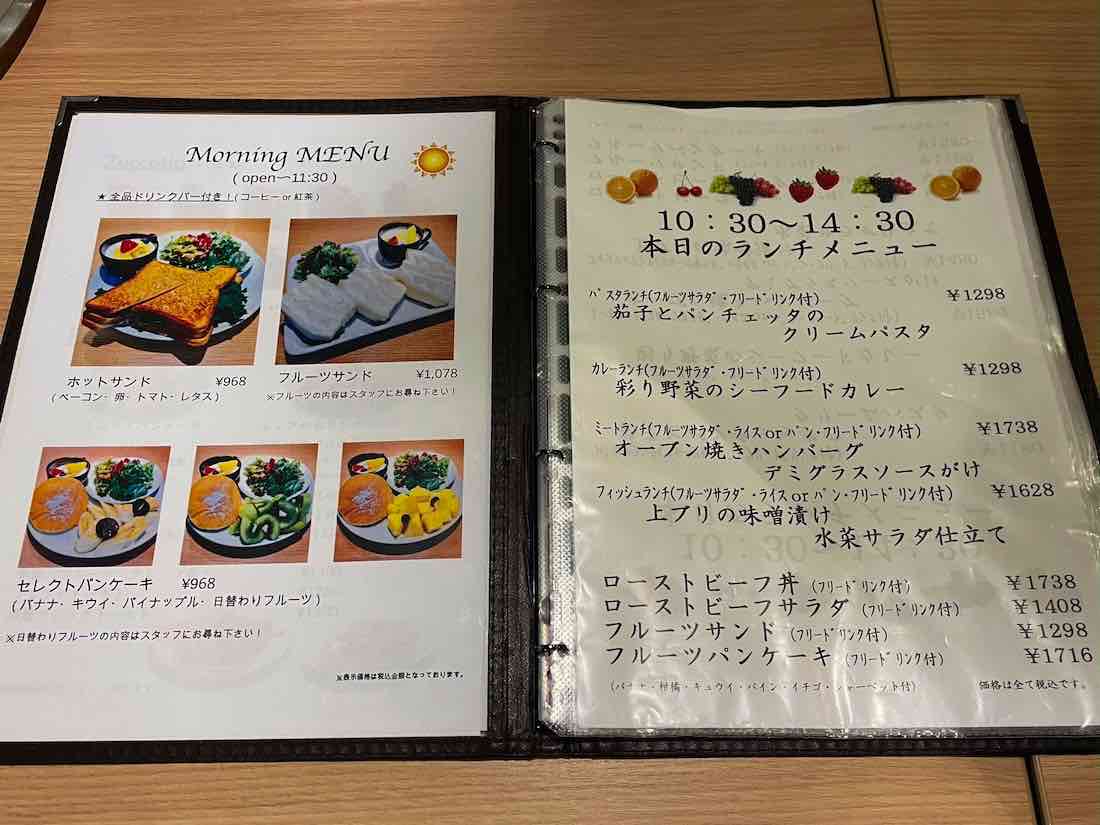 Morning MENU
( open～11:30 )
★ 全品ドリンクバー付き！( コーヒー or 紅茶 )
ホットサンド ¥968
( ベーコン・卵・トマト・レタス )
フルーツサンド ¥1,078
※フルーツの内容はスタッフにお尋ね下さい！
セレクトパンケーキ ¥968
( バナナ・キウイ・パイナップル・日替わりフルーツ )
※日替わりフルーツの内容はスタッフにお尋ね下さい！
※表示価格は税込金額となっております。
10：30～14：30
本日のランチメニュー
ﾊﾟｽﾀﾗﾝﾁ(ﾌﾙｰﾂｻﾗﾀﾞ・ﾌﾘｰﾄﾞﾘﾝｸ付) ￥1298
茄子とパンチェッタの
クリームパスタ
ｶﾚｰﾗﾝﾁ(ﾌﾙｰﾂｻﾗﾀﾞ・ﾌﾘｰﾄﾞﾘﾝｸ付) ￥1298
彩り野菜のシーフードカレー
ﾐｰﾄﾗﾝﾁ(ﾌﾙｰﾂｻﾗﾀﾞ・ﾗｲｽ or ﾊﾟﾝ・ﾌﾘｰﾄﾞﾘﾝｸ付) ￥1738
オーブン焼きハンバーグ
デミグラスソースがけ
ﾌｨｯｼｭﾗﾝﾁ(ﾌﾙｰﾂｻﾗﾀﾞ・ﾗｲｽ or ﾊﾟﾝ・ﾌﾘｰﾄﾞﾘﾝｸ付) ￥1628
上ブリの味噌漬け
水菜サラダ仕立て
ローストビーフ丼 (ﾌﾘｰﾄﾞﾘﾝｸ付) ￥1738
ローストビーフサラダ (ﾌﾘｰﾄﾞﾘﾝｸ付) ￥1408
フルーツサンド (ﾌﾘｰﾄﾞﾘﾝｸ付) ￥1298
フルーツパンケーキ (ﾌﾘｰﾄﾞﾘﾝｸ付) ￥1716
(バナナ・柑橘・キュウイ・パイン・イチゴ・シャーベット付) 価格は全て税込です。